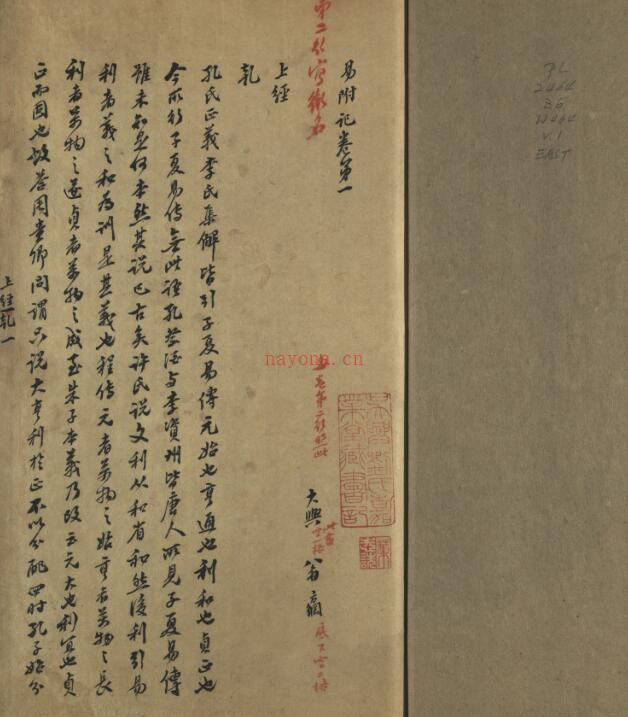 PL
2464
B6
W464
V.1
EAST
吳興劉氏嘉業堂藏書記
易附記卷第一
第二行寫銜名
大興
翁
上經
乾
孔氏正義李氏集解皆引子夏易傳元始也亨通也利和也貞正也
今所行子夏易傳無此語孔祭酒與李資州皆唐人所見子夏易傳
雖未知是何本然其說已古矣許氏說文利从和省和然後利引易
利者義之和為訓是其義也程傳元者萬物之始亨者萬物之長
利者萬物之遂貞者萬物之成至朱子本義乃改云元大也利宜也貞
正而固也故答周童卿問謂只說大亨利於正不以分配四時孔子始分
上經乾一
nayona.cn